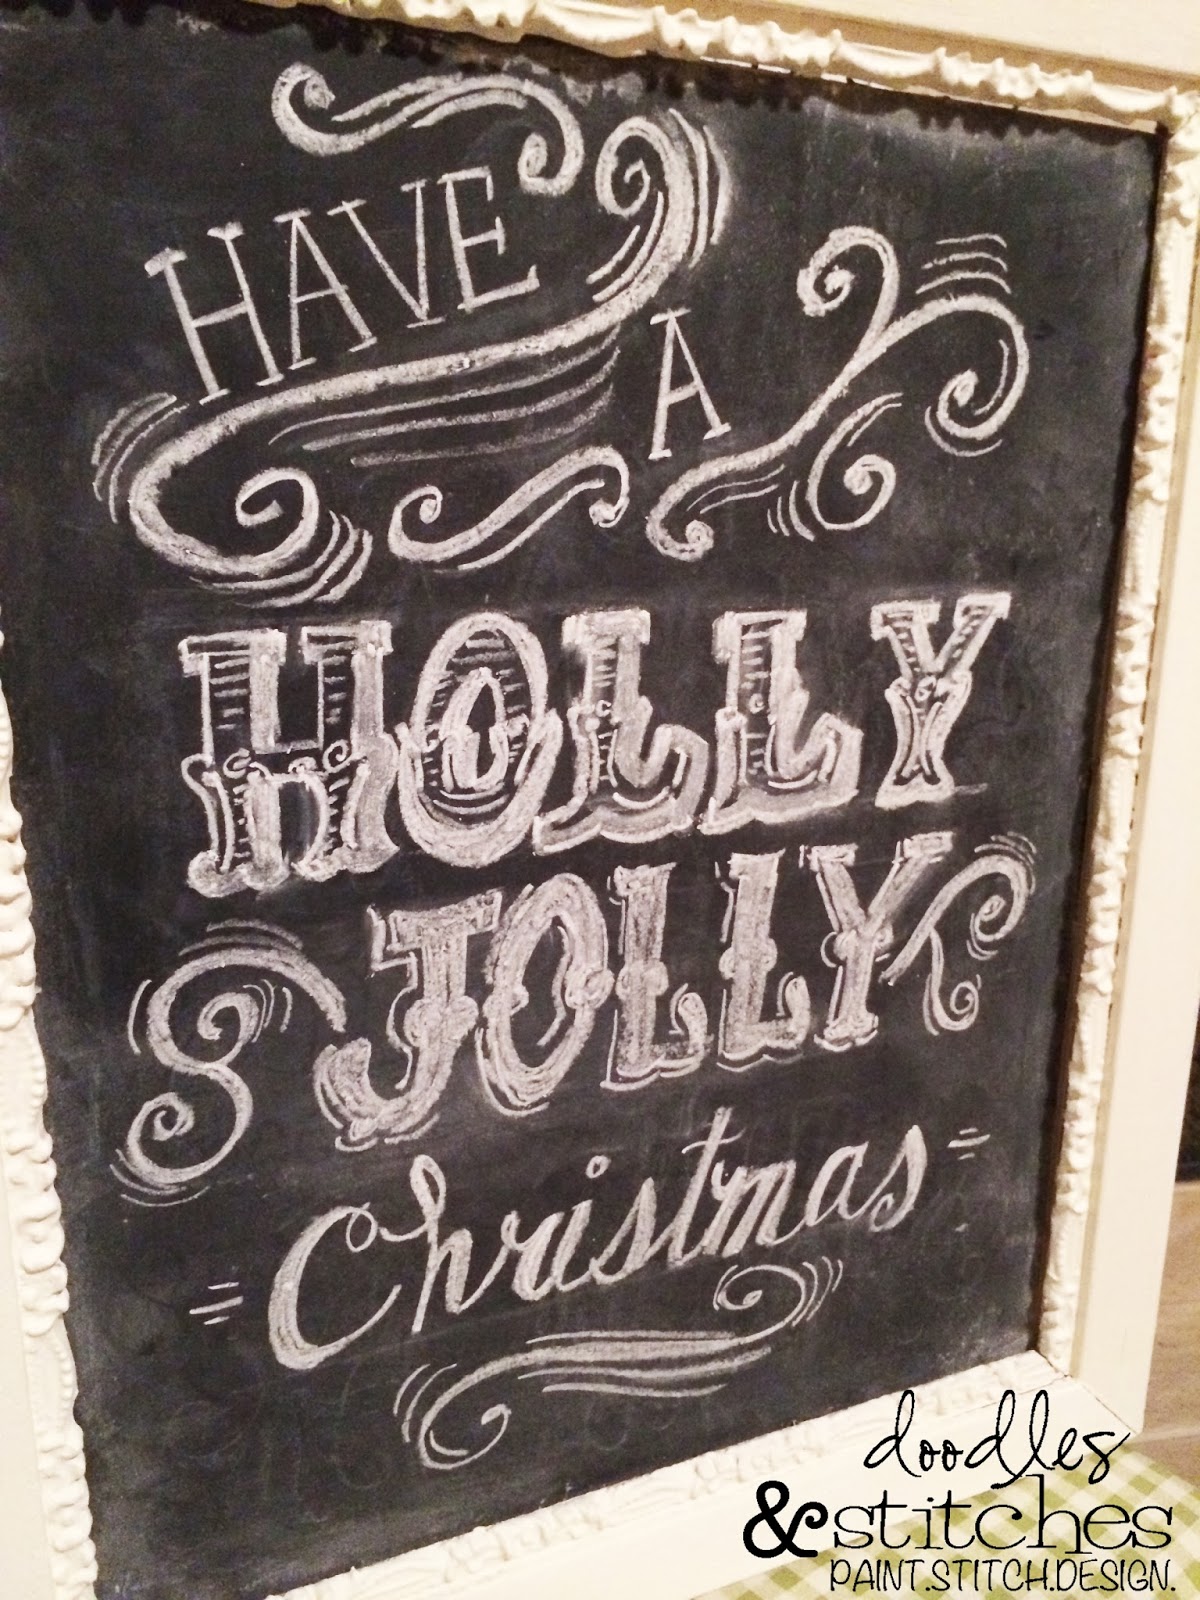 HAVE
A
HOLLY
JOLLY
Christmas
doodles
&stitches
PAINT.STITCH.DESIGN.